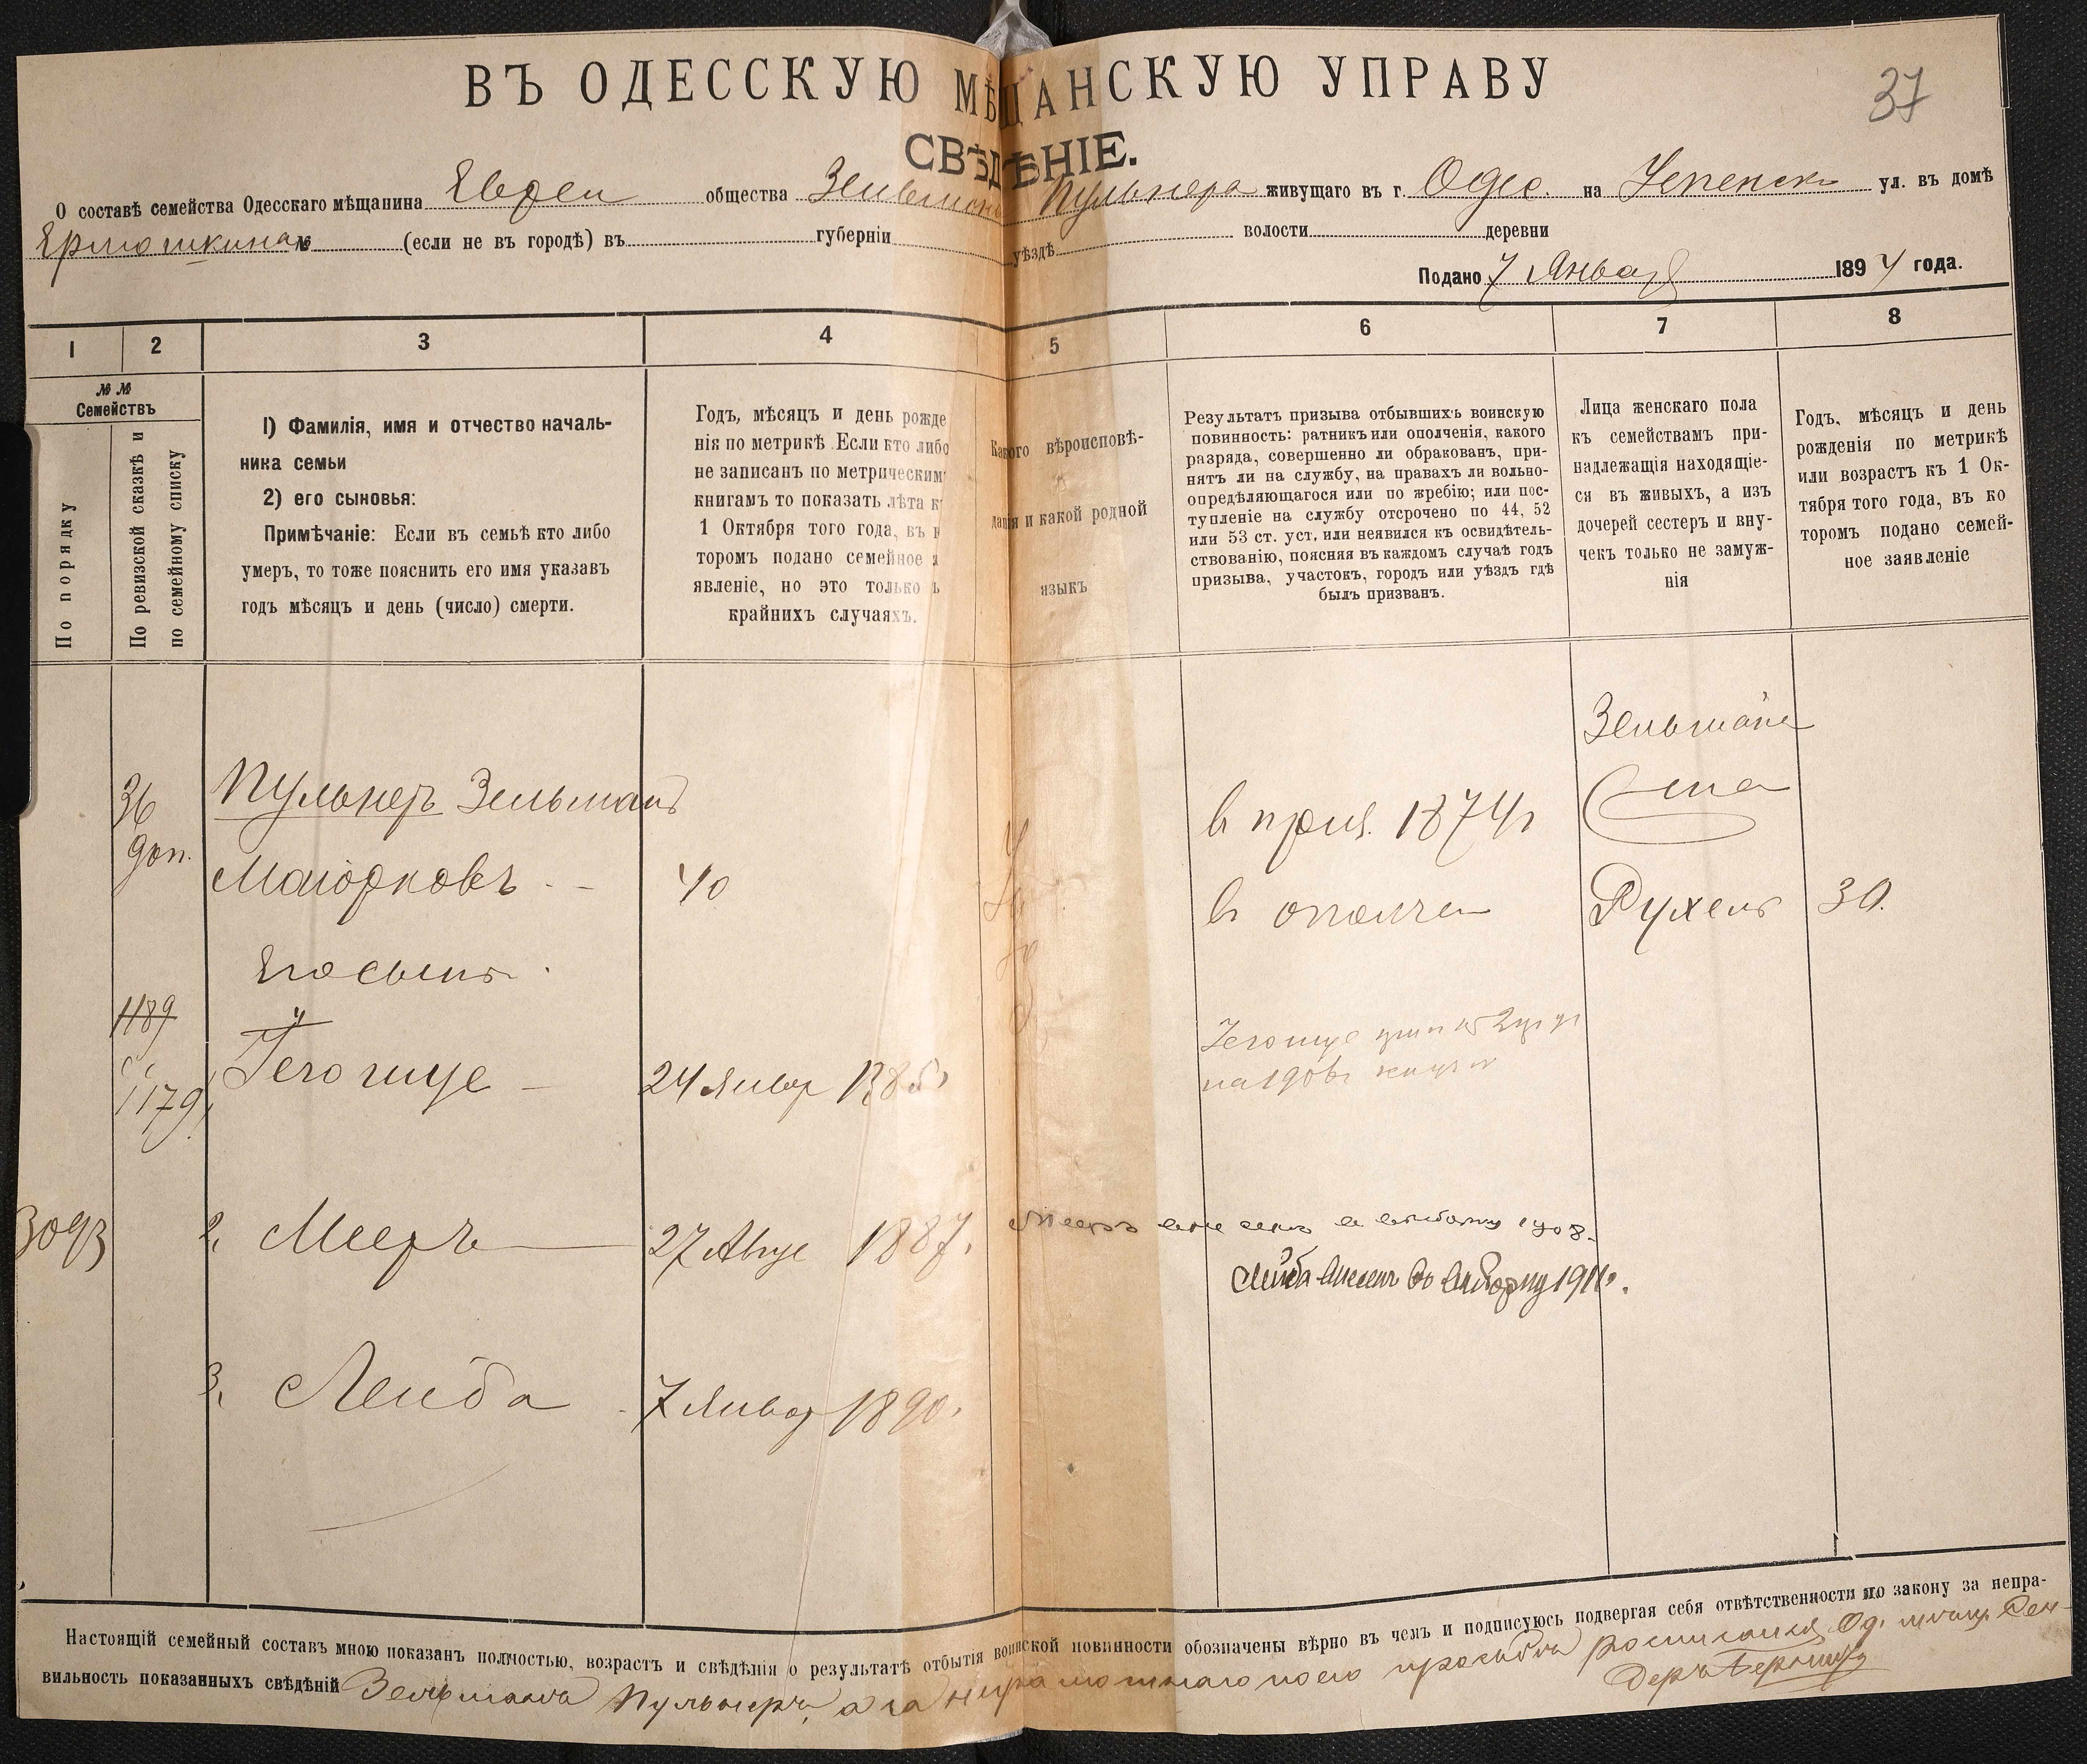 37
ВЪ ОДЕССКУЮ МѢЩАНСКУЮ УПРАВУ
СВѢДѢНІЕ.
О составѣ семейства Одесскаго мѣщанина Еврей общества Зельмана Пульнера живущаго въ г. Одес. на Успенск ул. въ домѣ
Ермошкина № (если не въ городѣ) въ губерніи уѣздѣ волости деревни
Подано 7 Января 1894 года.
1 2 3 4 5 6 7 8
№ №
Семействъ
По порядку
По ревизской сказкѣ и
по семейному списку
1) Фамилія, имя и отчество началь-
ника семьи
2) его сыновья:
Примѣчаніе: Если въ семьѣ кто либо
умеръ, то тоже пояснить его имя указавъ
годъ мѣсяцъ и день (число) смерти.
Годъ, мѣсяцъ и день рожде
нія по метрикѣ. Если кто либо
не записанъ по метрическим
книгамъ то показать лѣта к
1 Октября того года, въ к
торомъ подано семейное з
явленіе, но это только в
крайнихъ случаяхъ.
Какого вѣроисповѣ-
данія и какой родной
языкъ
Результатъ призыва отбывшихъ воинскую
повинность: ратникъ или ополченія, какого
разряда, совершенно ли обракованъ, при-
нятъ ли на службу, на правахъ ли вольно-
опредѣляющагося или по жребію; или пос-
тупленіе на службу отсрочено по 44, 52
или 53 ст. уст. или неявился къ освидѣтель-
ствованію, поясняя въ каждомъ случаѣ годъ
призыва, участокъ, городъ или уѣздъ гдѣ
былъ призванъ.
Лица женскаго пола
къ семействамъ при-
надлежащія находящіе-
ся въ живыхъ, а изъ
дочерей сестеръ и вну-
чекъ только не замуж-
нія
Годъ, мѣсяцъ и день
рожденія по метрикѣ
или возрастъ къ 1 Ок-
тября того года, въ ко
торомъ подано семей-
ное заявленіе
Зельмана
36 Пульнеръ Зельманъ в приз. 1874 г жена
доп. Маіорковъ 40 в ополчен Рухель 30.
Его сыны
1189
1179 Іегошуе 24 Январ 1885
на 1906
3093 2, Мееръ 27 Авгус 1887. Мееръ внесенъ в выборку 1908.
Лейба внесенъ во выборку 1911 г.
3, Лейба 7 Январ 1890.
Настоящій семейный составъ мною показанъ полностью, возрастъ и свѣдѣнія о результатѣ отбытія воинской повинности обозначены вѣрно въ чемъ и подписуюсь подвергая себя отвѣтственности по закону за непра-
вильность показанныхъ свѣдѣній Зельманъ Пульнеръ, а за неграмотнаго по его просьбѣ росписался Од. мѣщ.